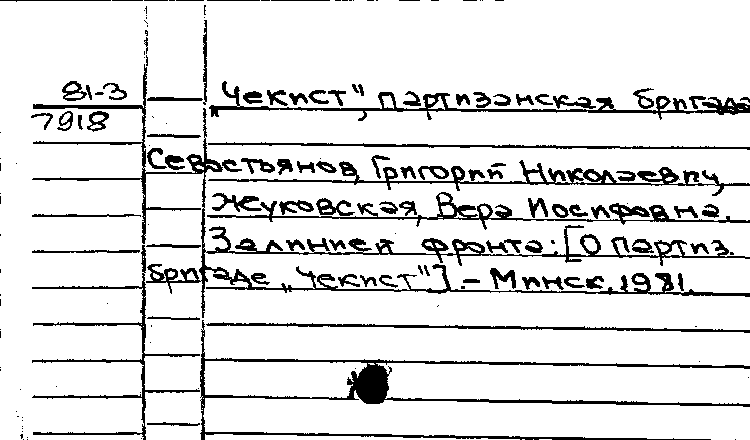 81-3
7918
„Чекист", партизанская бригада
Севостьянов, Григорий Николаевич,
Жуковская, Вера Иосифовна.
За линией фронта: [О партиз.
бригаде „Чекист"]. - Минск, 1981.